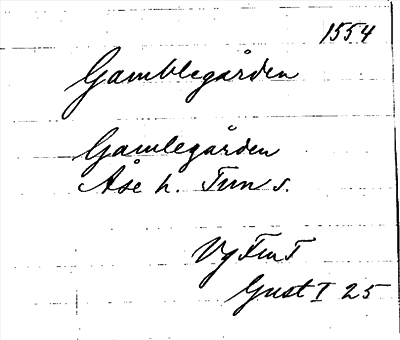 1554
Gamblegården
Gamlegården
Åse h. Tun s.
Vg FmT
Gust I 25